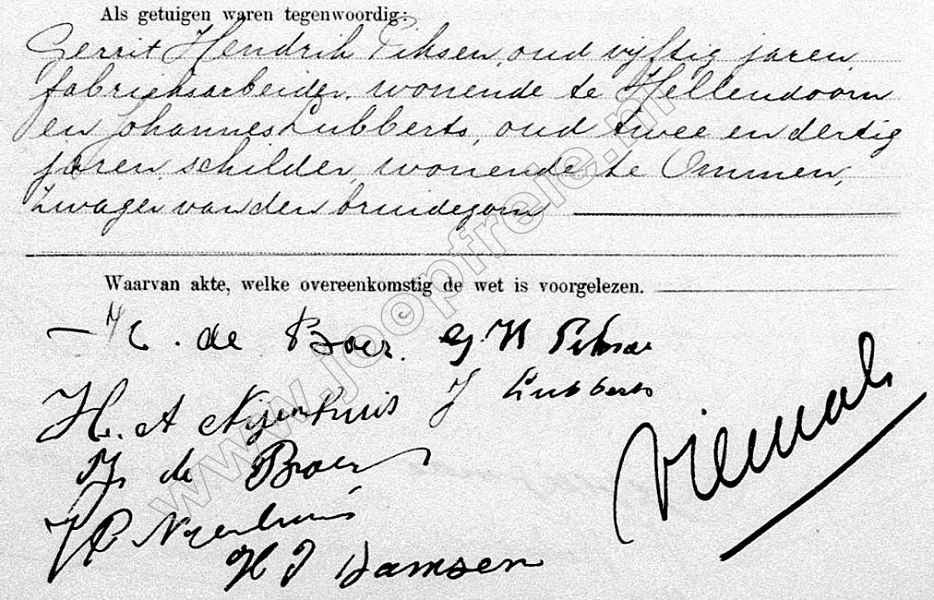 Als getuigen waren tegenwoordig:
Gerrit Hendrik Piksen, oud vyftig jaren,
fabrieksarbeider, wonende te Hellendoorn
en Johannes Lubberts, oud twee en dertig
jaren, schilder, wonende te Ommen,
zwager van den bruidegom
Waarvan akte, welke overeenkomstig de wet is voorgelezen.
de Boer. G H Piksen
H. A Nijenhuis J Lubberts
de Boer
Nijenhuis
H J Damsen
www.joopfreie.nl